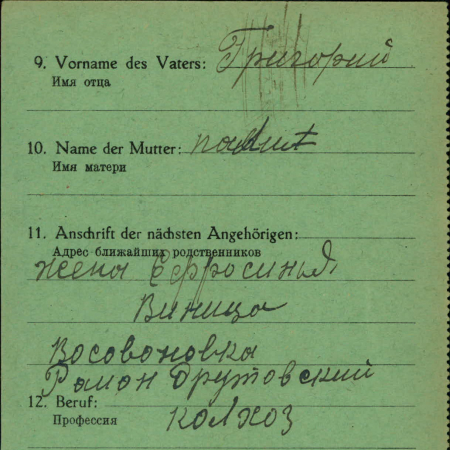 9. Vorname des Vaters: Григорий
Имя отца
10. Name der Mutter:
Имя матери
11. Anschrift der nächsten Angehörigen:
Адрес ближайших родственников
жена Ефросинья
Виница
Восовоновка
Район Друтовский
12. Beruf:
Профессия колхоз